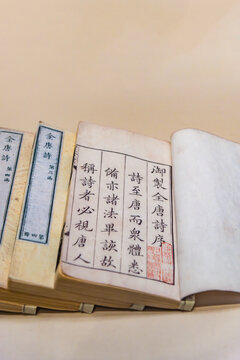 御製全唐詩序
詩至唐而衆體悉
備亦諸法畢該故
稱詩者必視唐人
全唐詩
第三函
第四冊
全唐詩
第四函